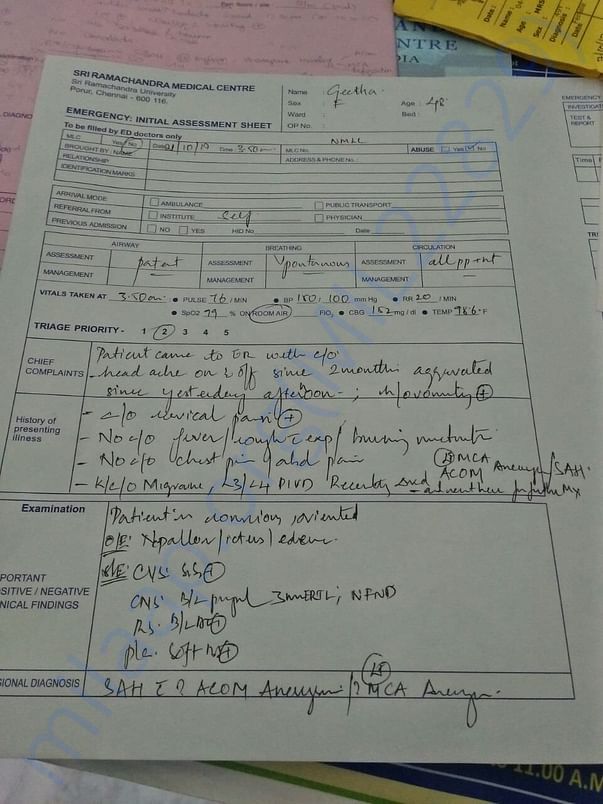 SRI RAMACHANDRA MEDICAL CENTRE
Sri Ramachandra University
Porur, Chennai - 600 116.
Name : Geetha
Sex : F Age : 48
Ward : Bed :
OP No. :
EMERGENCY: INITIAL ASSESSMENT SHEET
To be filled by ED doctors only
MLC Yes / No Date /10/19 Time : 3.50am MLC No. NMLC ABUSE Yes No
BROUGHT BY : NAME
RELATIONSHIP ADDRESS & PHONE No.
IDENTIFICATION MARKS
ARRIVAL MODE AMBULANCE PUBLIC TRANSPORT
REFERRAL FROM INSTITUTE Self PHYSICIAN
PREVIOUS ADMISSION NO YES HID No. Date
AIRWAY BREATHING CIRCULATION
ASSESSMENT patent ASSESSMENT Spontaneous ASSESSMENT all pp +nt
MANAGEMENT MANAGEMENT MANAGEMENT
VITALS TAKEN AT 3.50am PULSE 76 / MIN BP 150/100 mm Hg RR 20 / MIN
SpO2 99 % ON ROOM AIR FIO2 CBG 152 mg / dl TEMP 98.6 F
TRIAGE PRIORITY - 1 2 3 4 5
CHIEF COMPLAINTS
Patient came to ER with c/o
- head ache on & off since 2 months aggravated
since yesterday afternoon ; h/o vomiting +
History of presenting illness
- c/o cervical pain +
- No c/o fever / cough c exp / burning
- No c/o chest pain / abd pain
- K/c/o Migraine, L3/L4 PIVD Recently
MCA
ACOM Aneurysm / SAH
Mx
Examination
Patient is conscious, oriented
O/E: No pallor / icterus / edema
S/E: CVS: S1S2 +
CNS: B/L pupil 3mm ERTL; NFND
RS: B/L AE +
P/A: Soft +
PORTANT
OSITIVE / NEGATIVE
NICAL FINDINGS
SIONAL DIAGNOSIS SAH c ? ACOM Aneurysm / ? Lt MCA Aneurysm
NTRE
DIA
Name :
Age :
Sex :
Diagnosis :
Date :
MRS
EMERGENCY
INVESTIGAT
TEST &
REPORT
Time
11.00 A.M